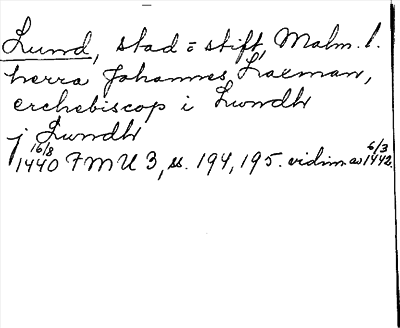 Lund, stad o stift, Malm. l.
herra Johannes Laxman,
erchebiscop i Lwndh
j Lwndh
16/8 1440 FMU 3, ss. 194, 195. vidim. av 6/3 1442.